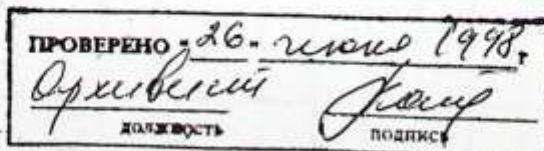 ПРОВЕРЕНО "26" июня 1998 г.
Архивист
должность подпись